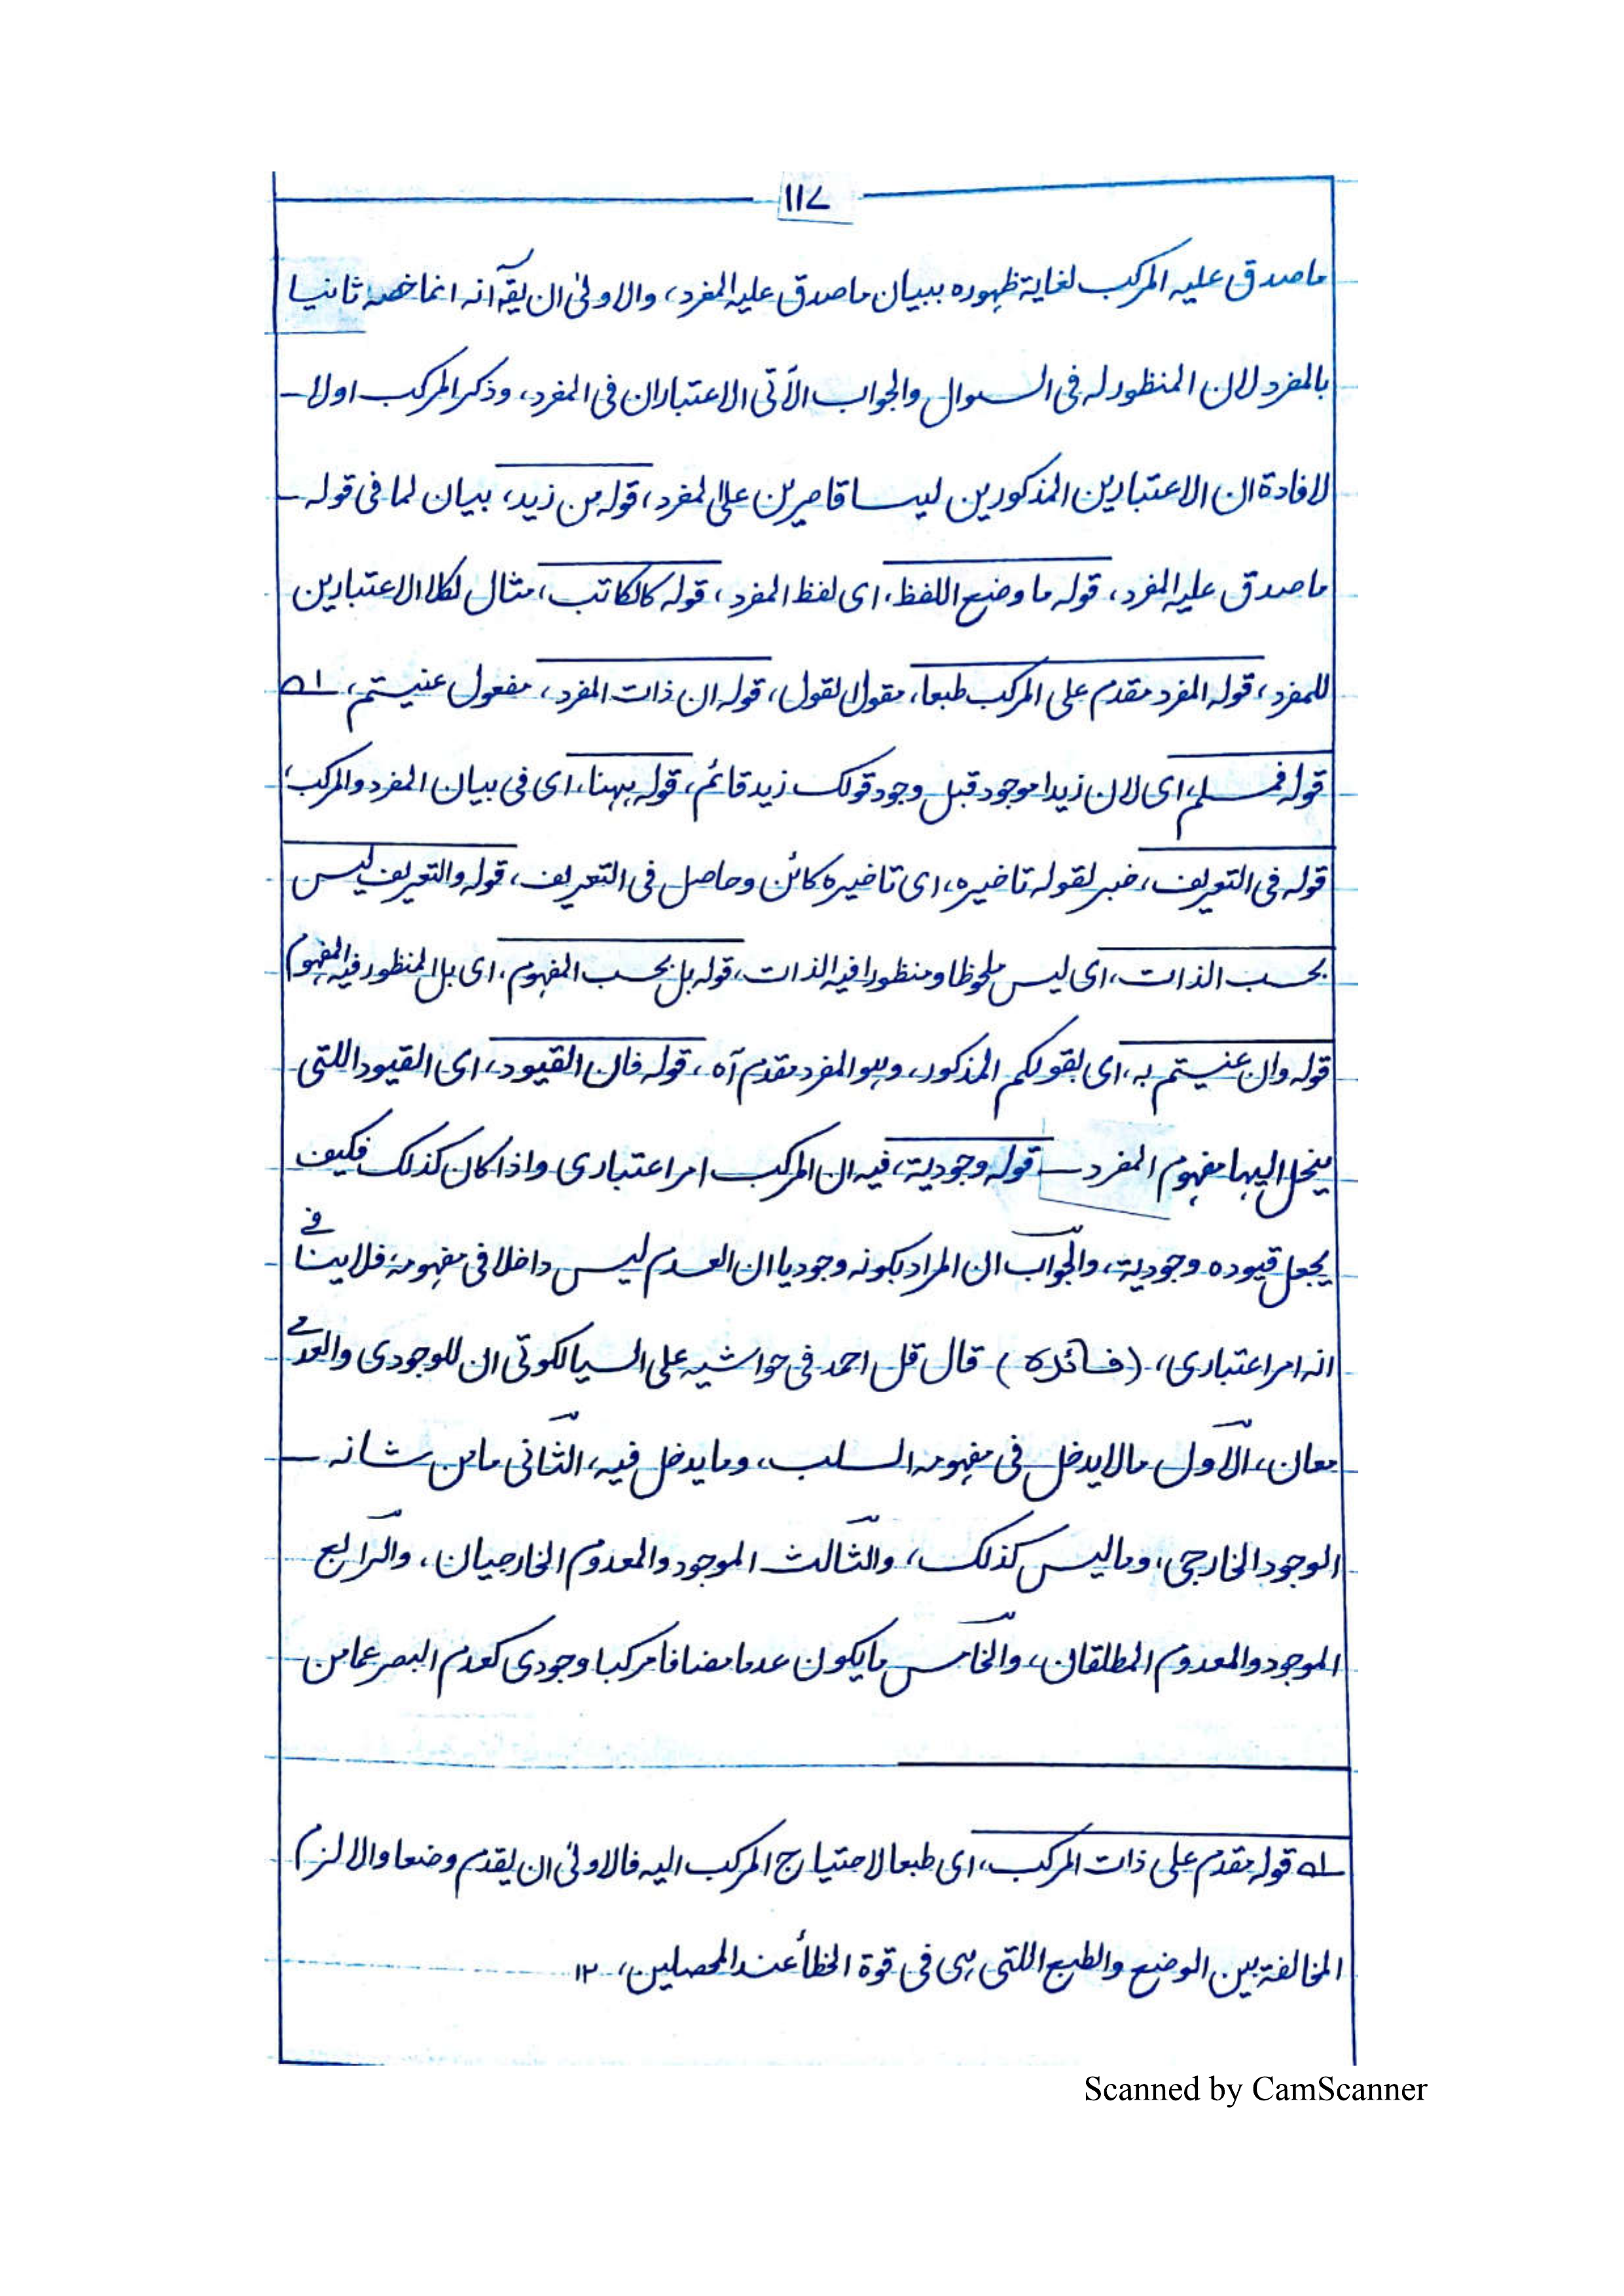 ۱۱۷
ما صدق علیہ المرکب لغایة ظہورہ ببیان ما صدق علیہ المفرد، والاولیٰ ان یقآ انہ انما خصہ ثانیا
بالمفرد لان المنظور لہ فی السوال والجواب الآتی الاعتباران فی المفرد، وذکر المرکب اولا ـ
لافادة ان الاعتبارین المذکورین لیسا قاصرین علی المفرد، قولہ من زید، بیان لما فی قولہ ـ
ما صدق علیہ المفرد، قولہ ما وضع اللفظ، ای لفظ المفرد، قولہ کالکاتب، مثال لکلا الاعتبارین
للمفرد، قولہ المفرد مقدم علی المرکب طبعا، مقول القول، قولہ ان ذات المفرد، مفعول عنیتم، ۱ھ
قولہ فمسلم، ای لان زیدا موجود قبل وجود قولک زید قائم، قولہ ہہنا، ای فی بیان المفرد والمرکب،
قولہ فی التعریف، خبر لقولہ تاخیرہ، ای تاخیرہ کائن وحاصل فی التعریف، قولہ والتعریف لیس
بحسب الذات، ای لیس ملحوظا ومنظورا فیہ الذات، قولہ بل بحسب المفہوم، ای بل المنظور فیہ المفہوم
قولہ وان عنیتم بہ، ای بقولکم المذکور، وہو المفرد مقدم آہ، قولہ فان القیود، ای القیود اللتی
ینحل الیہا مفہوم المفرد ـ قولہ وجودیة، فیہ ان المرکب امر اعتباری واذا کان کذلک فکیف
یجعل قیودہ وجودیة، والجواب ان المراد بکونہ وجودیا ان العدم لیس داخلا فی مفہومہ، فلا ینافی
انہ امر اعتباری، (فائدہ) قال قل احمد فی حواشیہ علی السیالکوتی ان للوجودی والعدمی
معان، الاول مالا یدخل فی مفہومہ السلب، وما یدخل فیہ، الثانی ما من شانہ ـ
الوجود الخارجی، وما لیس کذلک، والثالث الموجود والمعدوم الخارجیان، والرابع
الموجود والمعدوم المطلقان، والخامس ما یکون عدما مضافا مرکبا وجودی کعدم البصر عما من
۱ھ قولہ مقدم علی ذات المرکب، ای طبعا لاحتیاج المرکب الیہ فالاولیٰ ان یقدم وضعا والا لزم
المخالفة بین الوضع والطبع اللتی ہی فی قوة الخطأ عند المحصلین، ۱۲
Scanned by CamScanner